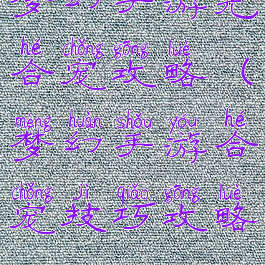 梦幻手游
hé chǒng gōng lüè
合宠攻略(
mèng huàn shǒu yóu hé
梦幻手游合
chǒng jì qiǎo gōng lüè
宠技巧攻略